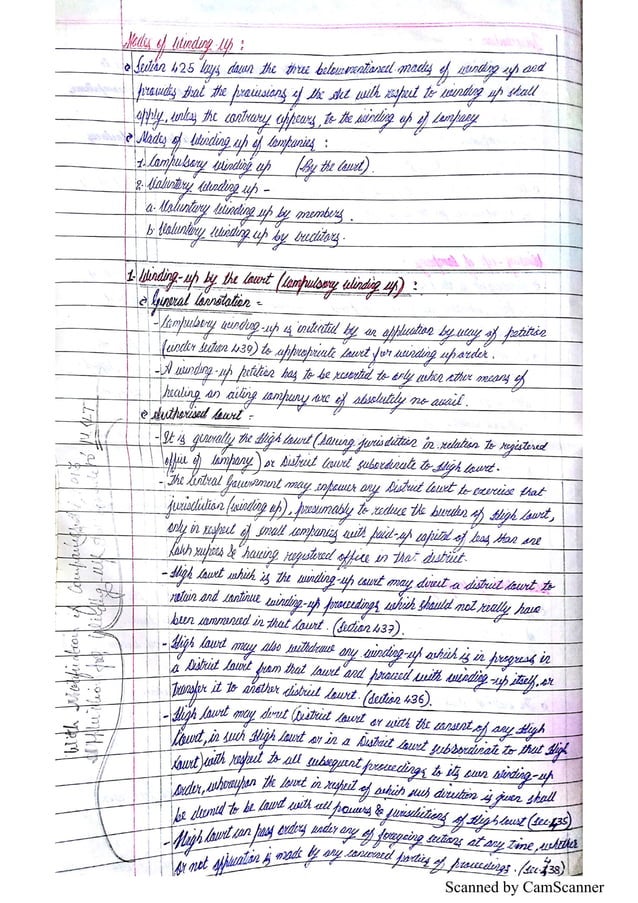 Modes of Winding Up :
Section 425 lays down the three belowmentioned modes of winding up and
provides that the provisions of the Act with respect to winding up shall
apply, unless the contrary appears, to the winding up of company
Modes of Winding up of Companies :
1. Compulsory Winding up (By the Court).
2. Voluntary Winding up -
a. Voluntary Winding up by members.
b. Voluntary Winding up by Creditors.
1. Winding-up by the Court (Compulsory Winding up) :
General Connotation =
- Compulsory winding-up is initiated by an application by way of petition
(under Section 439) to appropriate Court for winding up order.
- A winding-up petition has to be resorted to only when other means of
healing an ailing company are of absolutely no avail.
Authorised Court =
- It is generally the High Court (having jurisdiction in relation to registered
office of company) or District Court subordinate to High Court.
- The Central Government may empower any District Court to exercise that
jurisdiction (winding up), presumably to reduce the burden of High Court,
only in respect of small companies with paid-up capital of less than one
lakh rupees & having registered office in that district.
- High Court which is the winding-up court may direct a district court to
retain and continue winding-up proceedings which should not really have
been commenced in that Court. (Section 437).
- High Court may also withdraw any winding-up which is in progress in
a District Court from that Court and proceed with winding-up itself, or
transfer it to another district court. (Section 436).
- High Court may direct (District Court or with the consent of any High
Court, in such High Court or in a District Court subordinate to that High
Court) with respect to all subsequent proceedings to its own winding-up
order, whereupon the Court in respect of which such direction is given shall
be deemed to be Court with all powers & jurisdictions of High Court (Sec 435)
- High Court can pass orders under any of foregoing sections at any time, whether
or not application is made by any concerned parties of proceedings. (Sec 438)
With of Companies 2013
to NCLT
Scanned by CamScanner